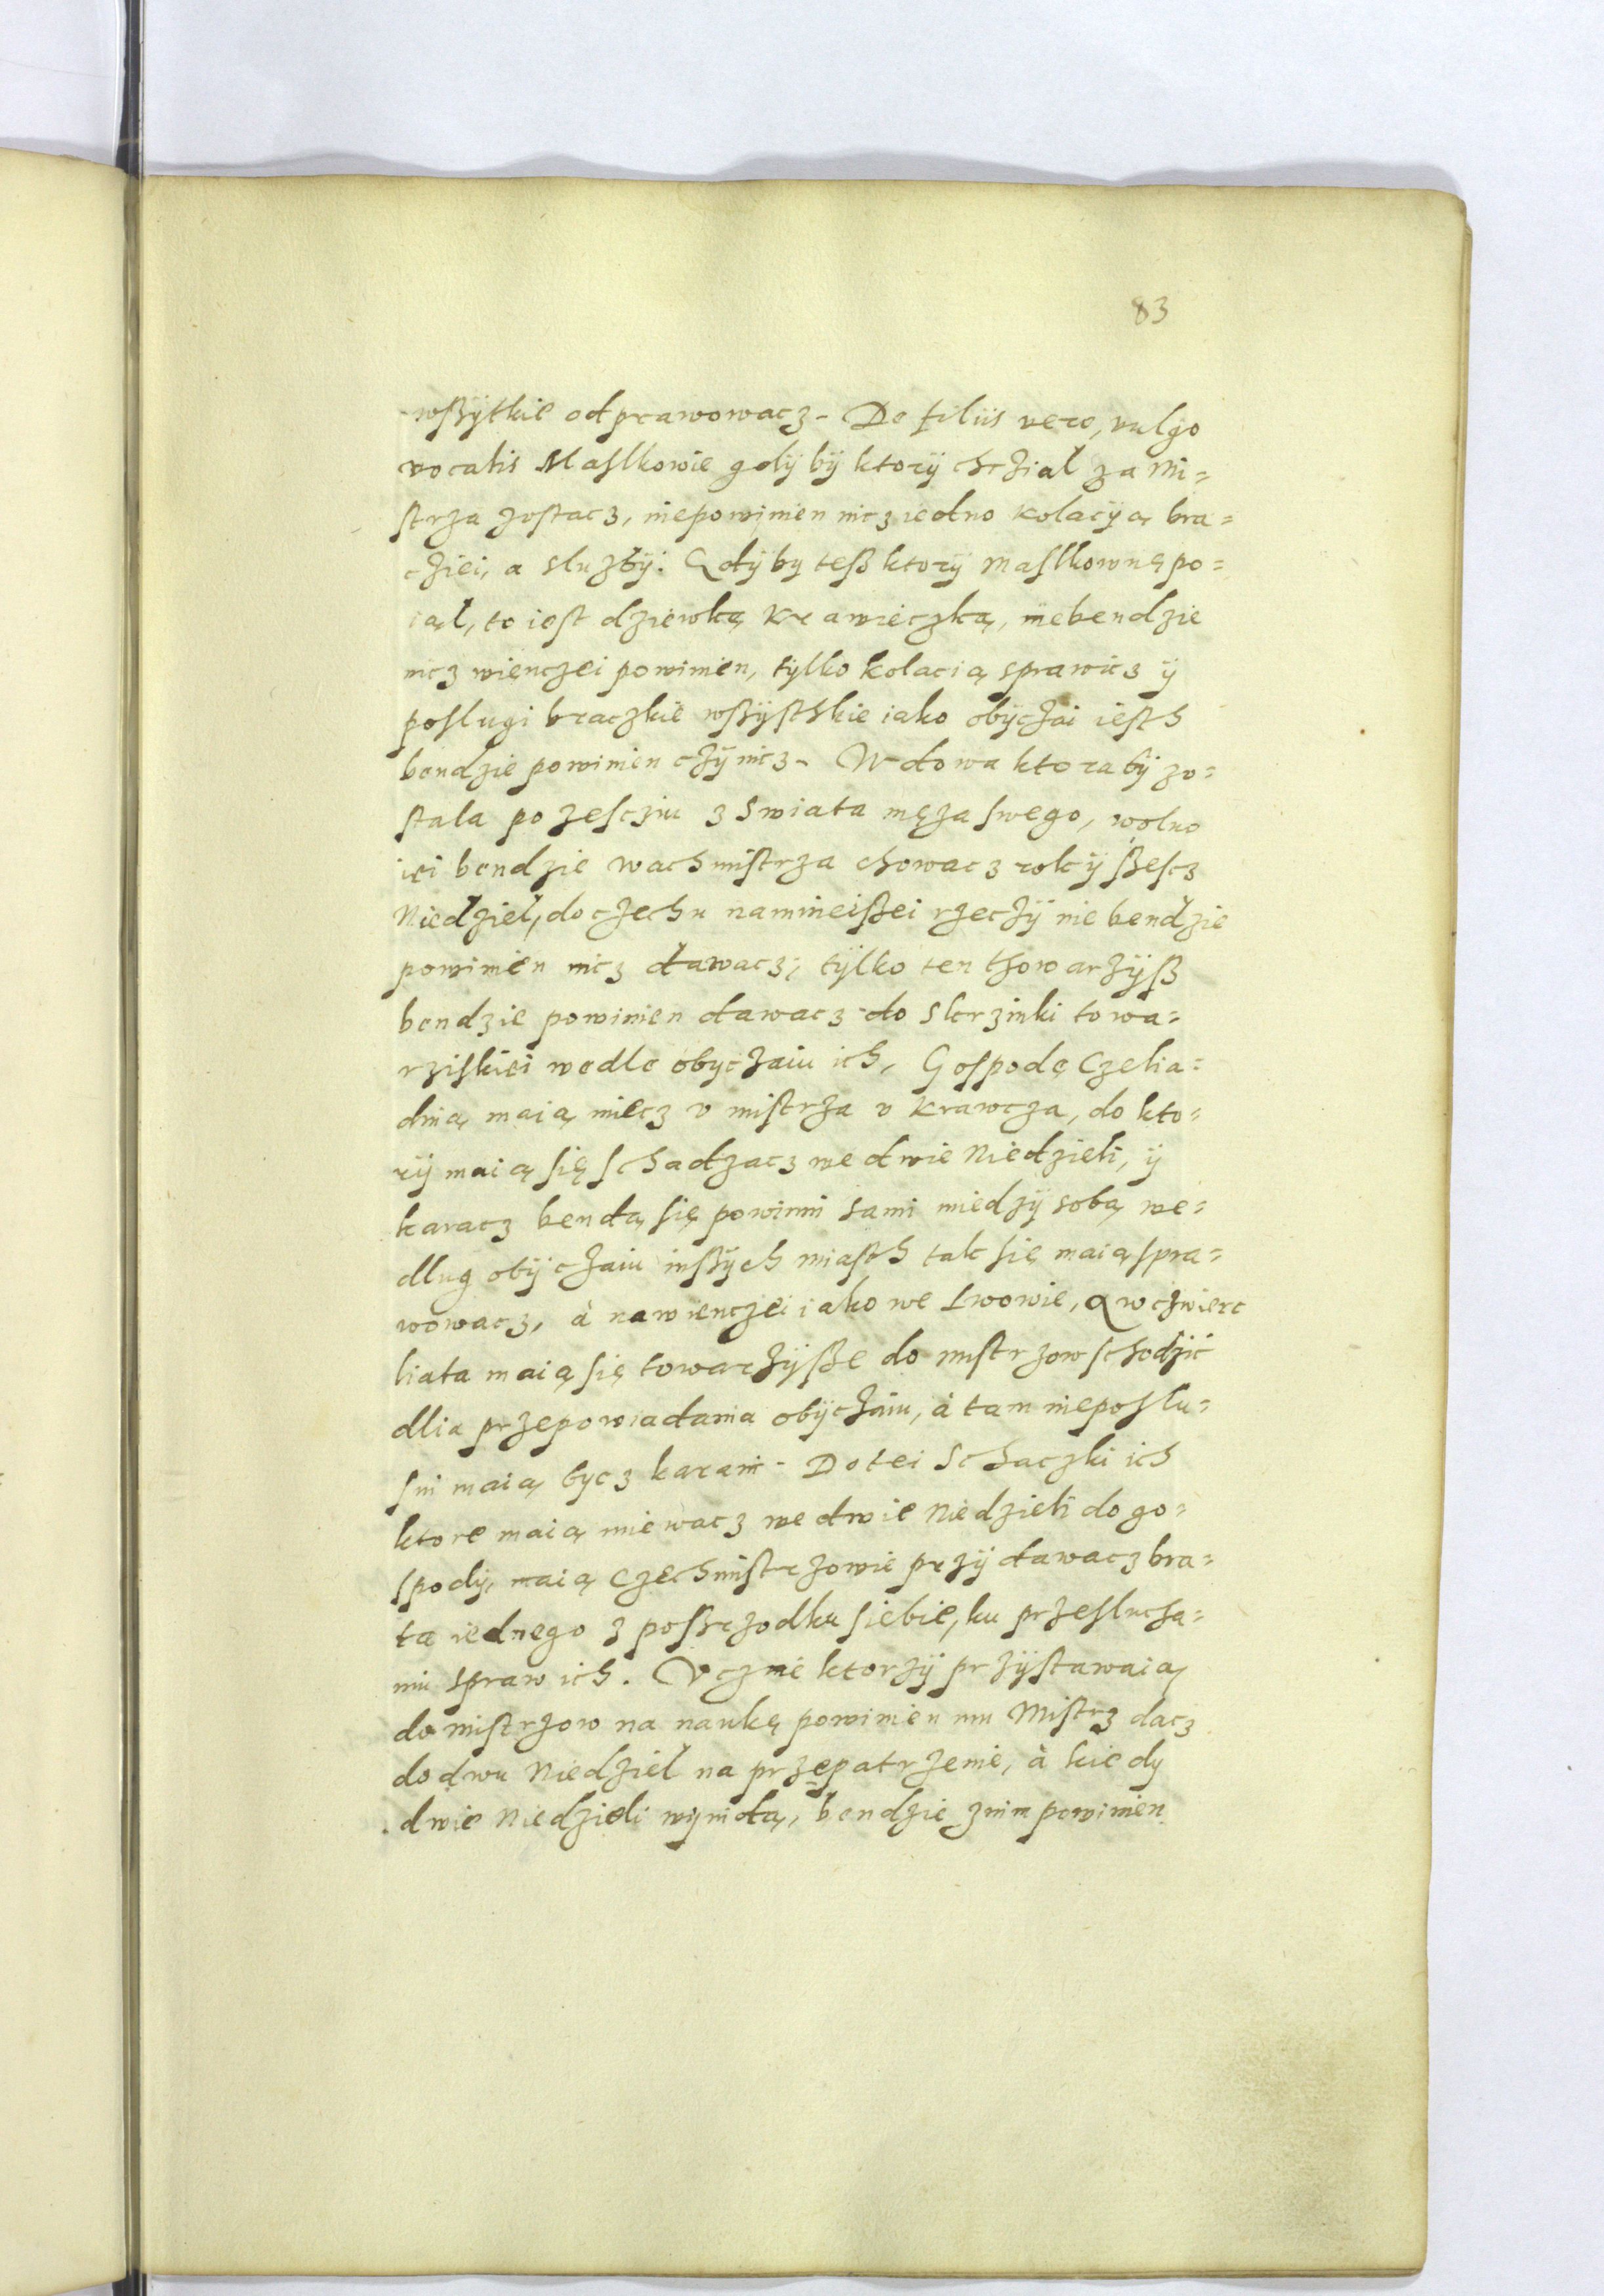 83
wßÿtkie odprawowacz - De filiis vero, vulgo
vocatis Maslkowie gdÿ bÿ ktorÿ chcział za Mi=
ſtrza zoſtacz, niepowinien nicz iedno kolacÿą bra=
cziei, a służbÿ. Gdÿby teß ktorÿ maſlkownę po=
iął, to ieſt dziewką krawieczką, niebendzie
nicz wienczei powinien, tÿlko kolacią sprawicz ÿ
poſlugi braczkie wßÿſthkie iako obÿczai ieſth
bendzie powinien czÿnicz - Wdowa ktorabÿ zo=
ſtala po zeſcziu z swiata męża ſwego, wolno
iei bendzie wachmiſtrza chowacz rok ÿ ßeſcz
Niedziel, do czechu namnieißei rzeczÿ nie bendzie
powinien nicz dawacz, tÿlko ten thowarzÿß
bendzie powinien dawacz do skrzinki towa=
rziſkiei wedle obyczaiu ich, Goſpodę Czelia=
dnią maią miecz v miſtrza v krawcza, do kto=
rÿ maią ſię ſchadzacz we dwie Niedzieli, ÿ
karacz bendą ſię powinni sami miedzÿ sobą we=
dlug obÿczaiu inßÿch miaſth tak ſię maią ſpra=
wowacz, à nawienczei iako we Lwowie, a w czwierc
liata maią ſię towarzÿße do miſtrzow ſchodzic
dlia przepowiadania obÿczaiu, à tam niepoſlu=
ſni maią bycz karani - Do tei schaczki ich
ktore maią miewacz we dwie Niedzieli do go=
ſpodÿ, maią Czechmiſtrzowie przÿdawacz bra=
ta iednego z poßrzodku ſiebie, ku przeſlucha=
niu spraw ich. Vcznie ktorzÿ przÿſtawaią
do miſtrzow na naukę powinien mu Miſtrz dacz
do dwu Niedziel na przepatrzenie, à kiedy
dwie Niedzieli wÿnidą, bendzie znim powinien